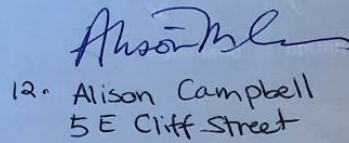 12. Alison Campbell
5 E Cliff Street